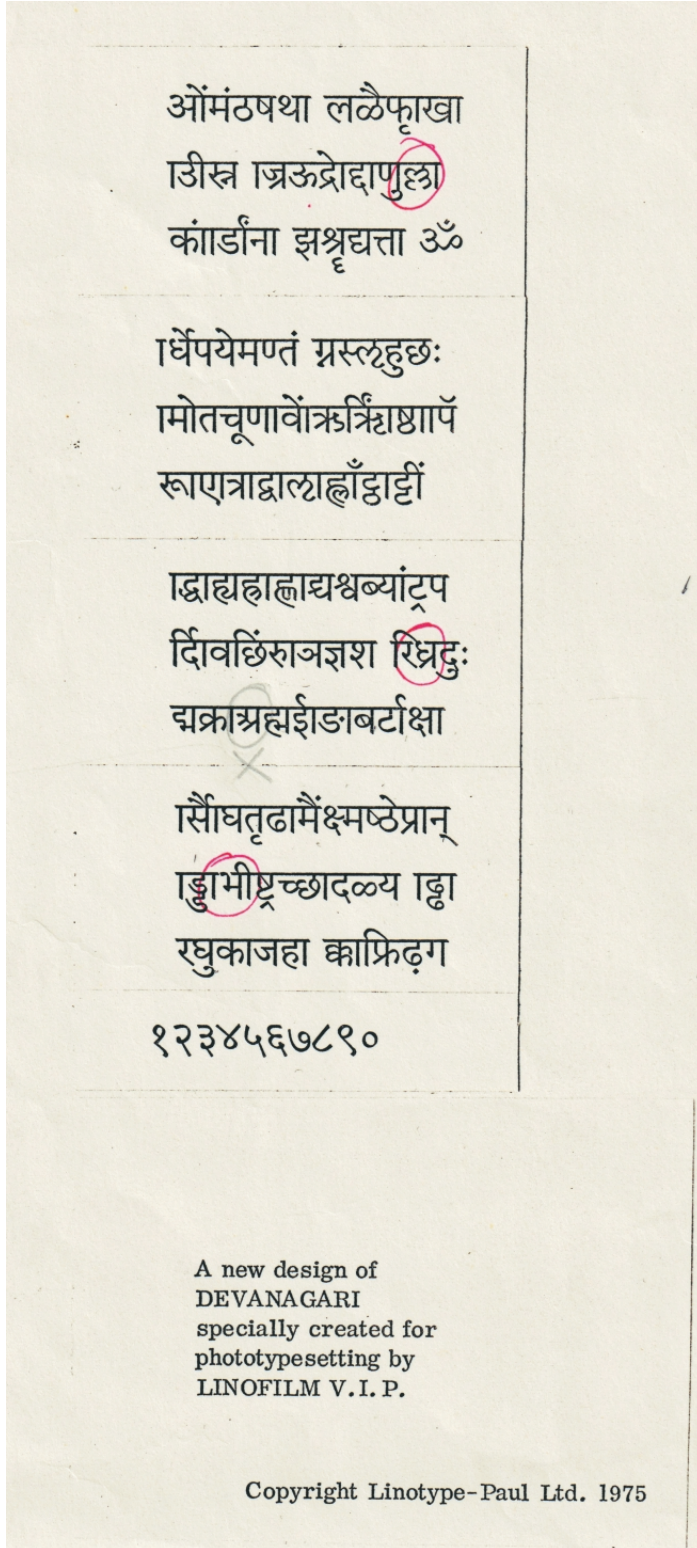 ओंमंठषथा लळैफृाखा
ाउीस्न ाज्रऊद्रोद्दाणुल्ला
कांार्डांना झश्रॄद्यत्ता ॐ
ार्धेपयेमण्तं ग्नस्लृहुछः
ामोतचूणार्वोऋर्ऋिंाष्ठाापॅ
रूाएात्राद्वालृाह्लाँट्ठाट्टीं
ाद्धाह्यह्राह्णाद्यश्वब्यांट्रप
र्दिावछिंरुाञज्ञश रिध्रिदुः
द्मक्राथ्रह्मईाङाबर्टाक्षा
ार्सैाघतृढामैंक्ष्मष्ठेप्रान्
ाड्डाभीष्ट्रच्छादळ्य ाढ्ढा
रघुकाजहा क्काफ्रिढ़ग
१२३४५६७८९०
A new design of
DEVANAGARI
specially created for
phototypesetting by
LINOFILM V.I.P.
Copyright Linotype-Paul Ltd. 1975